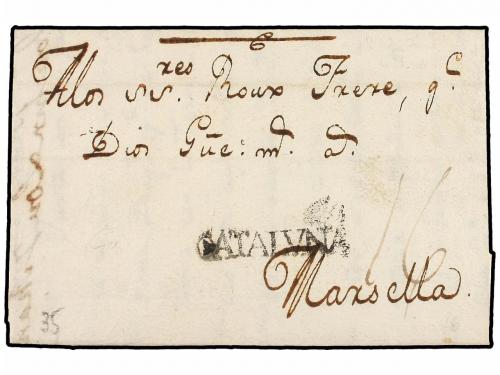 A los ss.res Roux Frere, q.e
Dios Gūe: m.s a.s
CATALVÑA
Marsella.
35